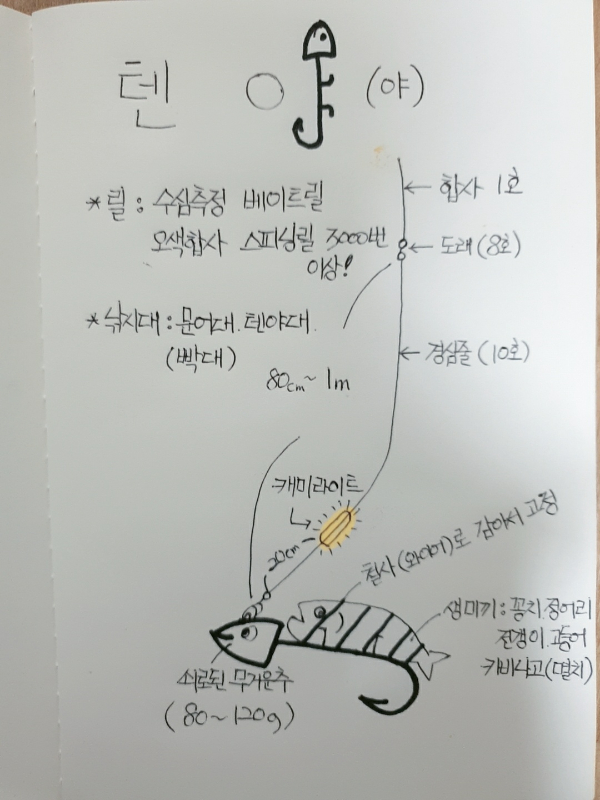 텐 (야)
*릴 : 수심측정 베이트릴
오색합사 스피닝릴 3000번
이상!
*낚시대 : 문어대. 텐야대.
(빡대)
← 합사 1호
← 도래 (8호)
← 경심줄 (10호)
80cm~1m
캐미라이트
20cm
철사(와이어)로 감아서 고정
생미끼 : 꽁치. 정어리
전갱이. 고등어
키비나고(멸치)
쇠로된 무거운추
(80~120g)